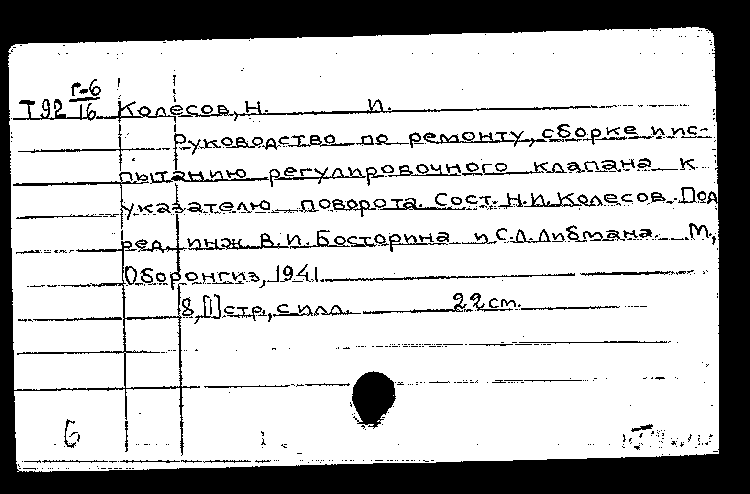 Г-6
Т92 16 Колесов, Н. И.
Руководство по ремонту, сборке и ис-
пытанию регулировочного клапана к
указателю поворота. Сост. Н.И. Колесов. Под
ред. инж. В.И. Босторина и С.Л. Либмана. М,
Оборонгиз, 1941
8, [1] стр., с илл. 22 cm.
6